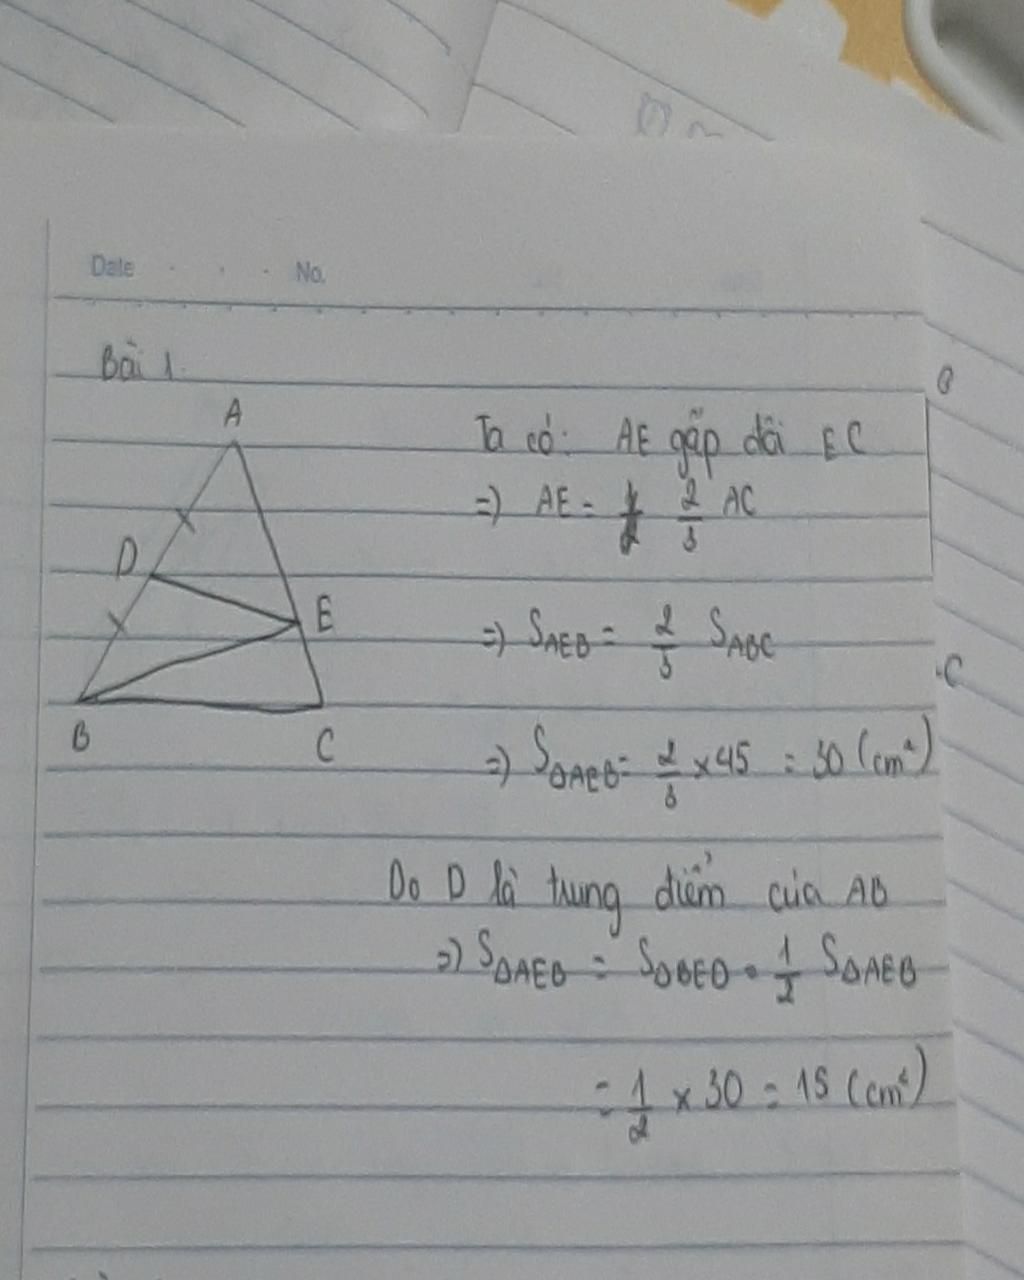 Date No.
Bài 1.
A
D
E
B
C
Ta có: AE gấp đôi EC
=) AE = 2/3 AC
=) SAEB = 2/3 SABC
=) SΔAEB = 2/3 x 45 = 30 (cm²)
Do D là trung điểm của AB
=) SΔAEB = SΔBED = 1/2 SΔAEB
= 1/2 x 30 = 15 (cm²)
C